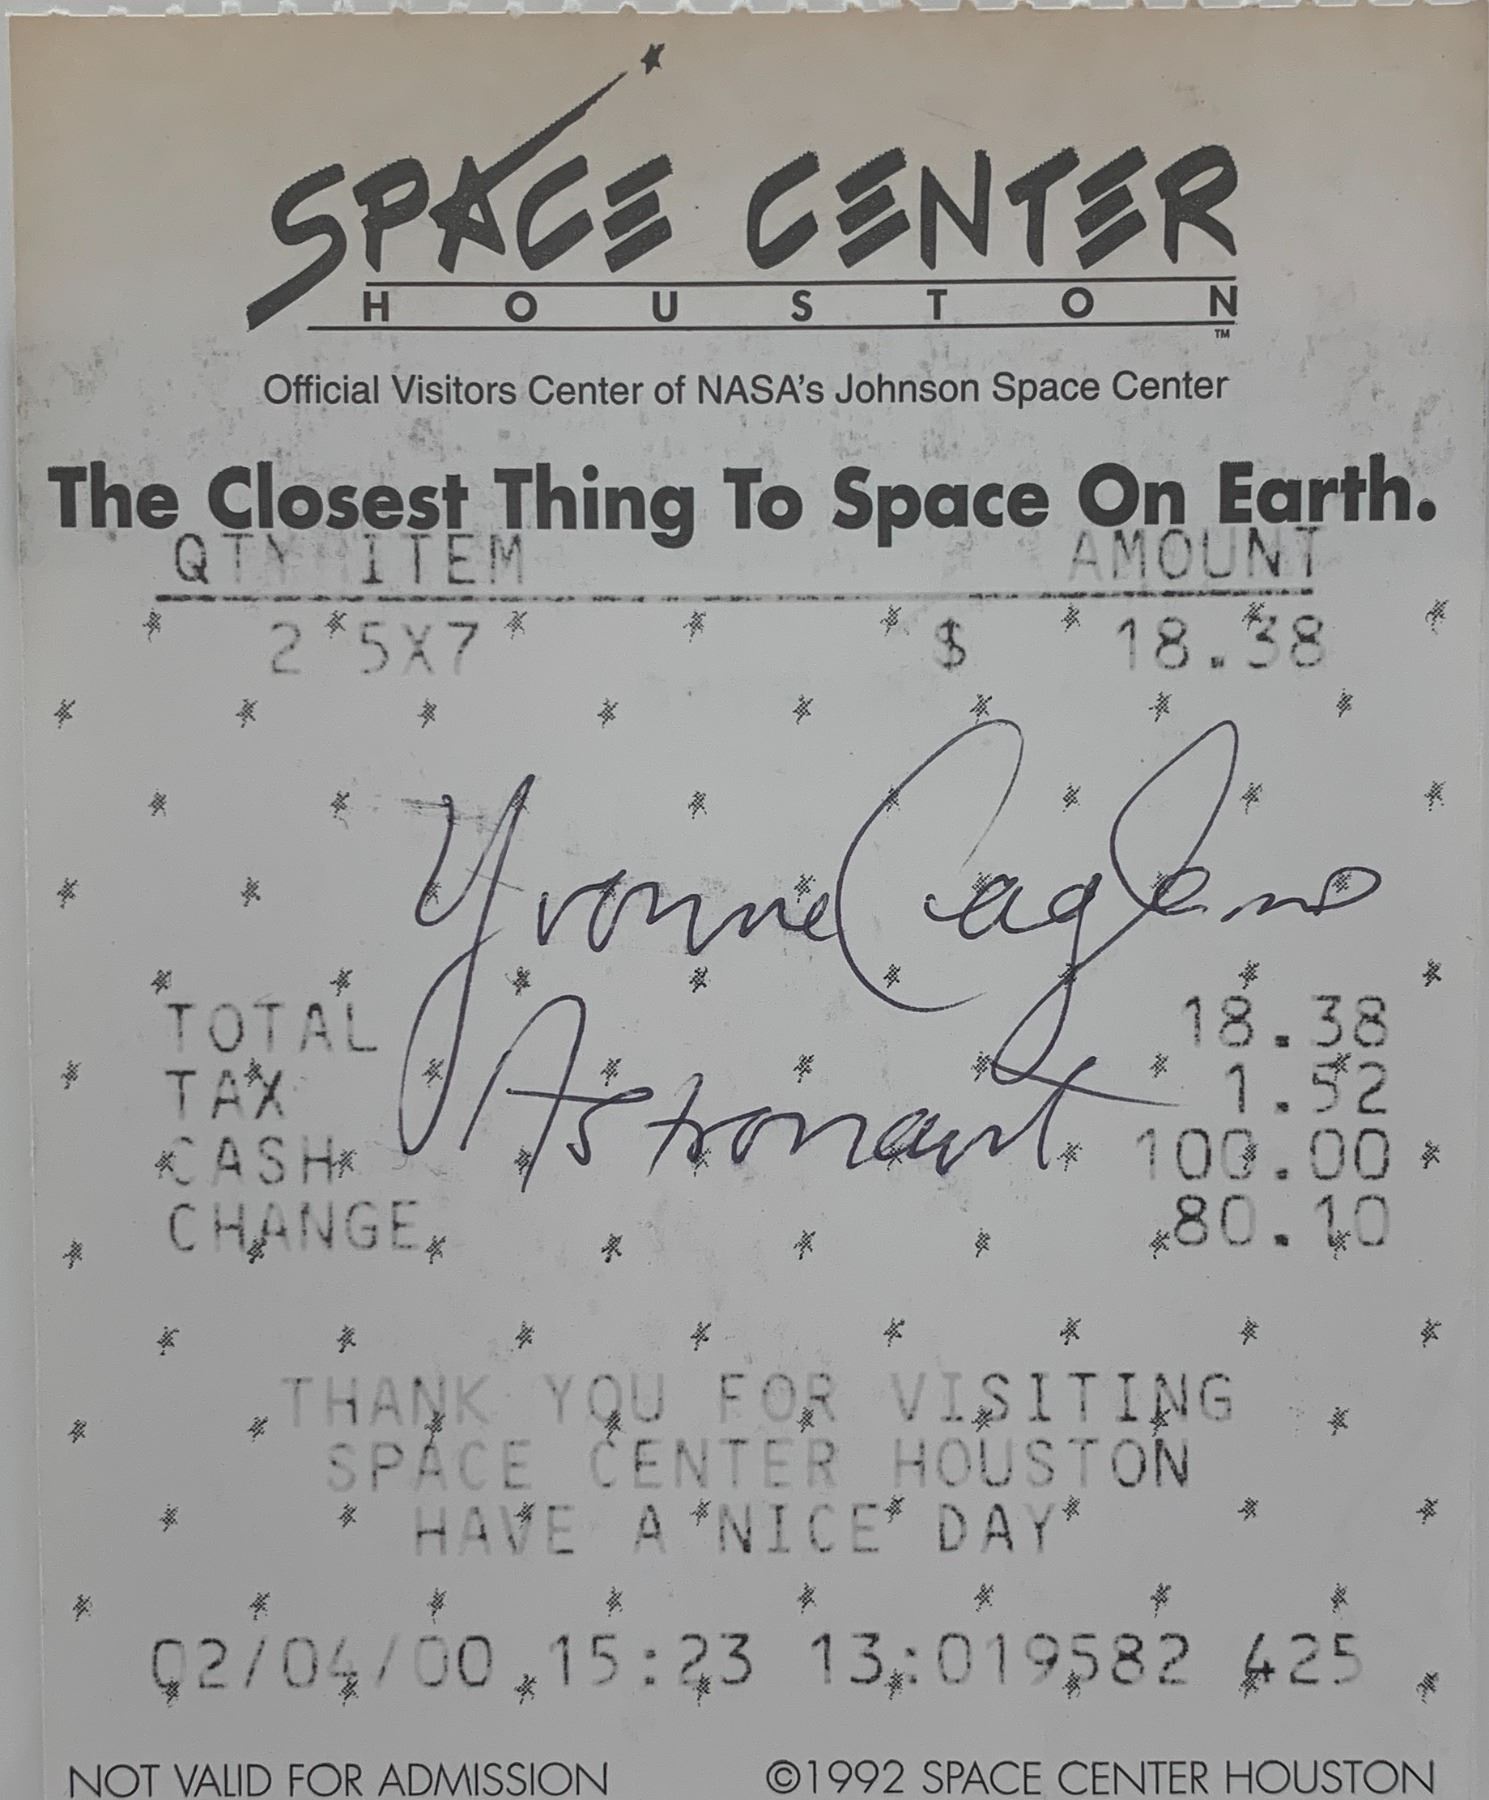 SPACE CENTER
HOUSTON
TM
Official Visitors Center of NASA's Johnson Space Center
The Closest Thing To Space On Earth.
QTY ITEM AMOUNT
2 5X7 $ 18.38
Yvonne Cagle
TOTAL 18.38
Astronaut
TAX 1.52
CASH 100.00
CHANGE 80.10
THANK YOU FOR VISITING
SPACE CENTER HOUSTON
HAVE A NICE DAY
02/04/00 15:23 13:019582 425
NOT VALID FOR ADMISSION ©1992 SPACE CENTER HOUSTON